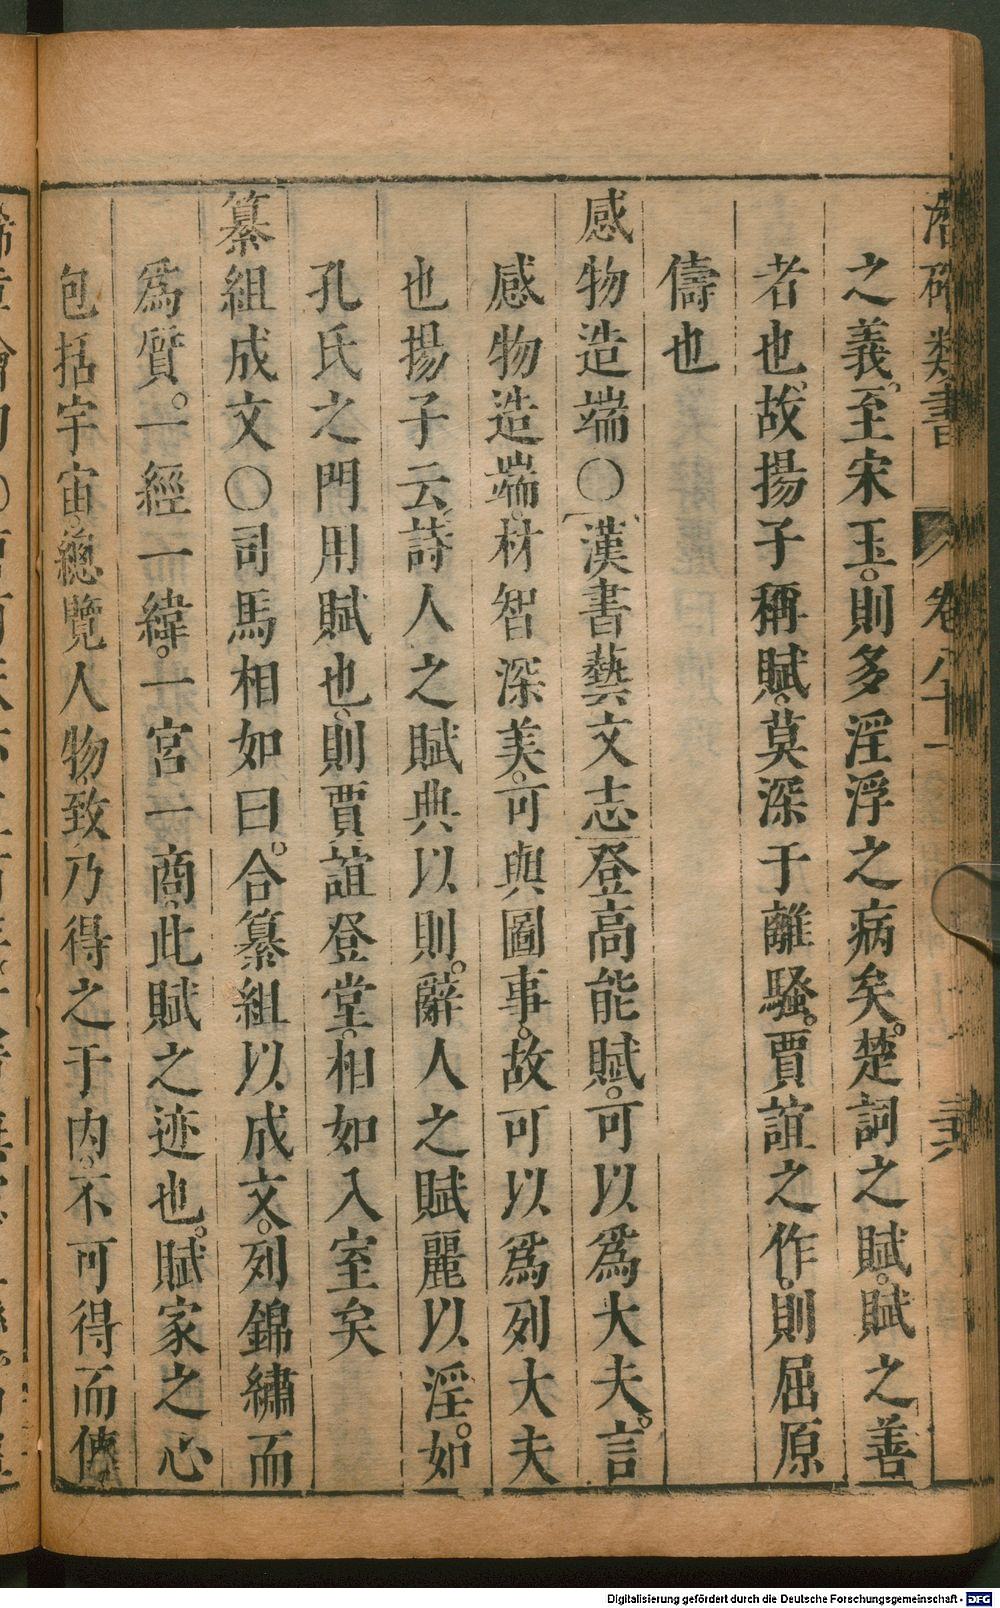 潛確類書 卷八十一
之義至宋玉。則多淫浮之病矣。楚詞之賦。賦之善
者也。故揚子稱賦。莫深于離騷。賈誼之作。則屈原
儔也
感物造端○漢書藝文志登高能賦。可以爲大夫。言
感物造端。材智深美。可與圖事。故可以爲列大夫
也揚子云。詩人之賦典以則。辭人之賦麗以淫。如
孔氏之門用賦也。則賈誼登堂。相如入室矣
纂組成文○司馬相如曰。合纂組以成文。列錦繡而
爲質。一經一緯。一宮一商。此賦之迹也。賦家之心
包括宇宙。總覽人物。致乃得之于内。不可得而傳
Digitalisierung gefördert durch die Deutsche Forschungsgemeinschaft - DFG